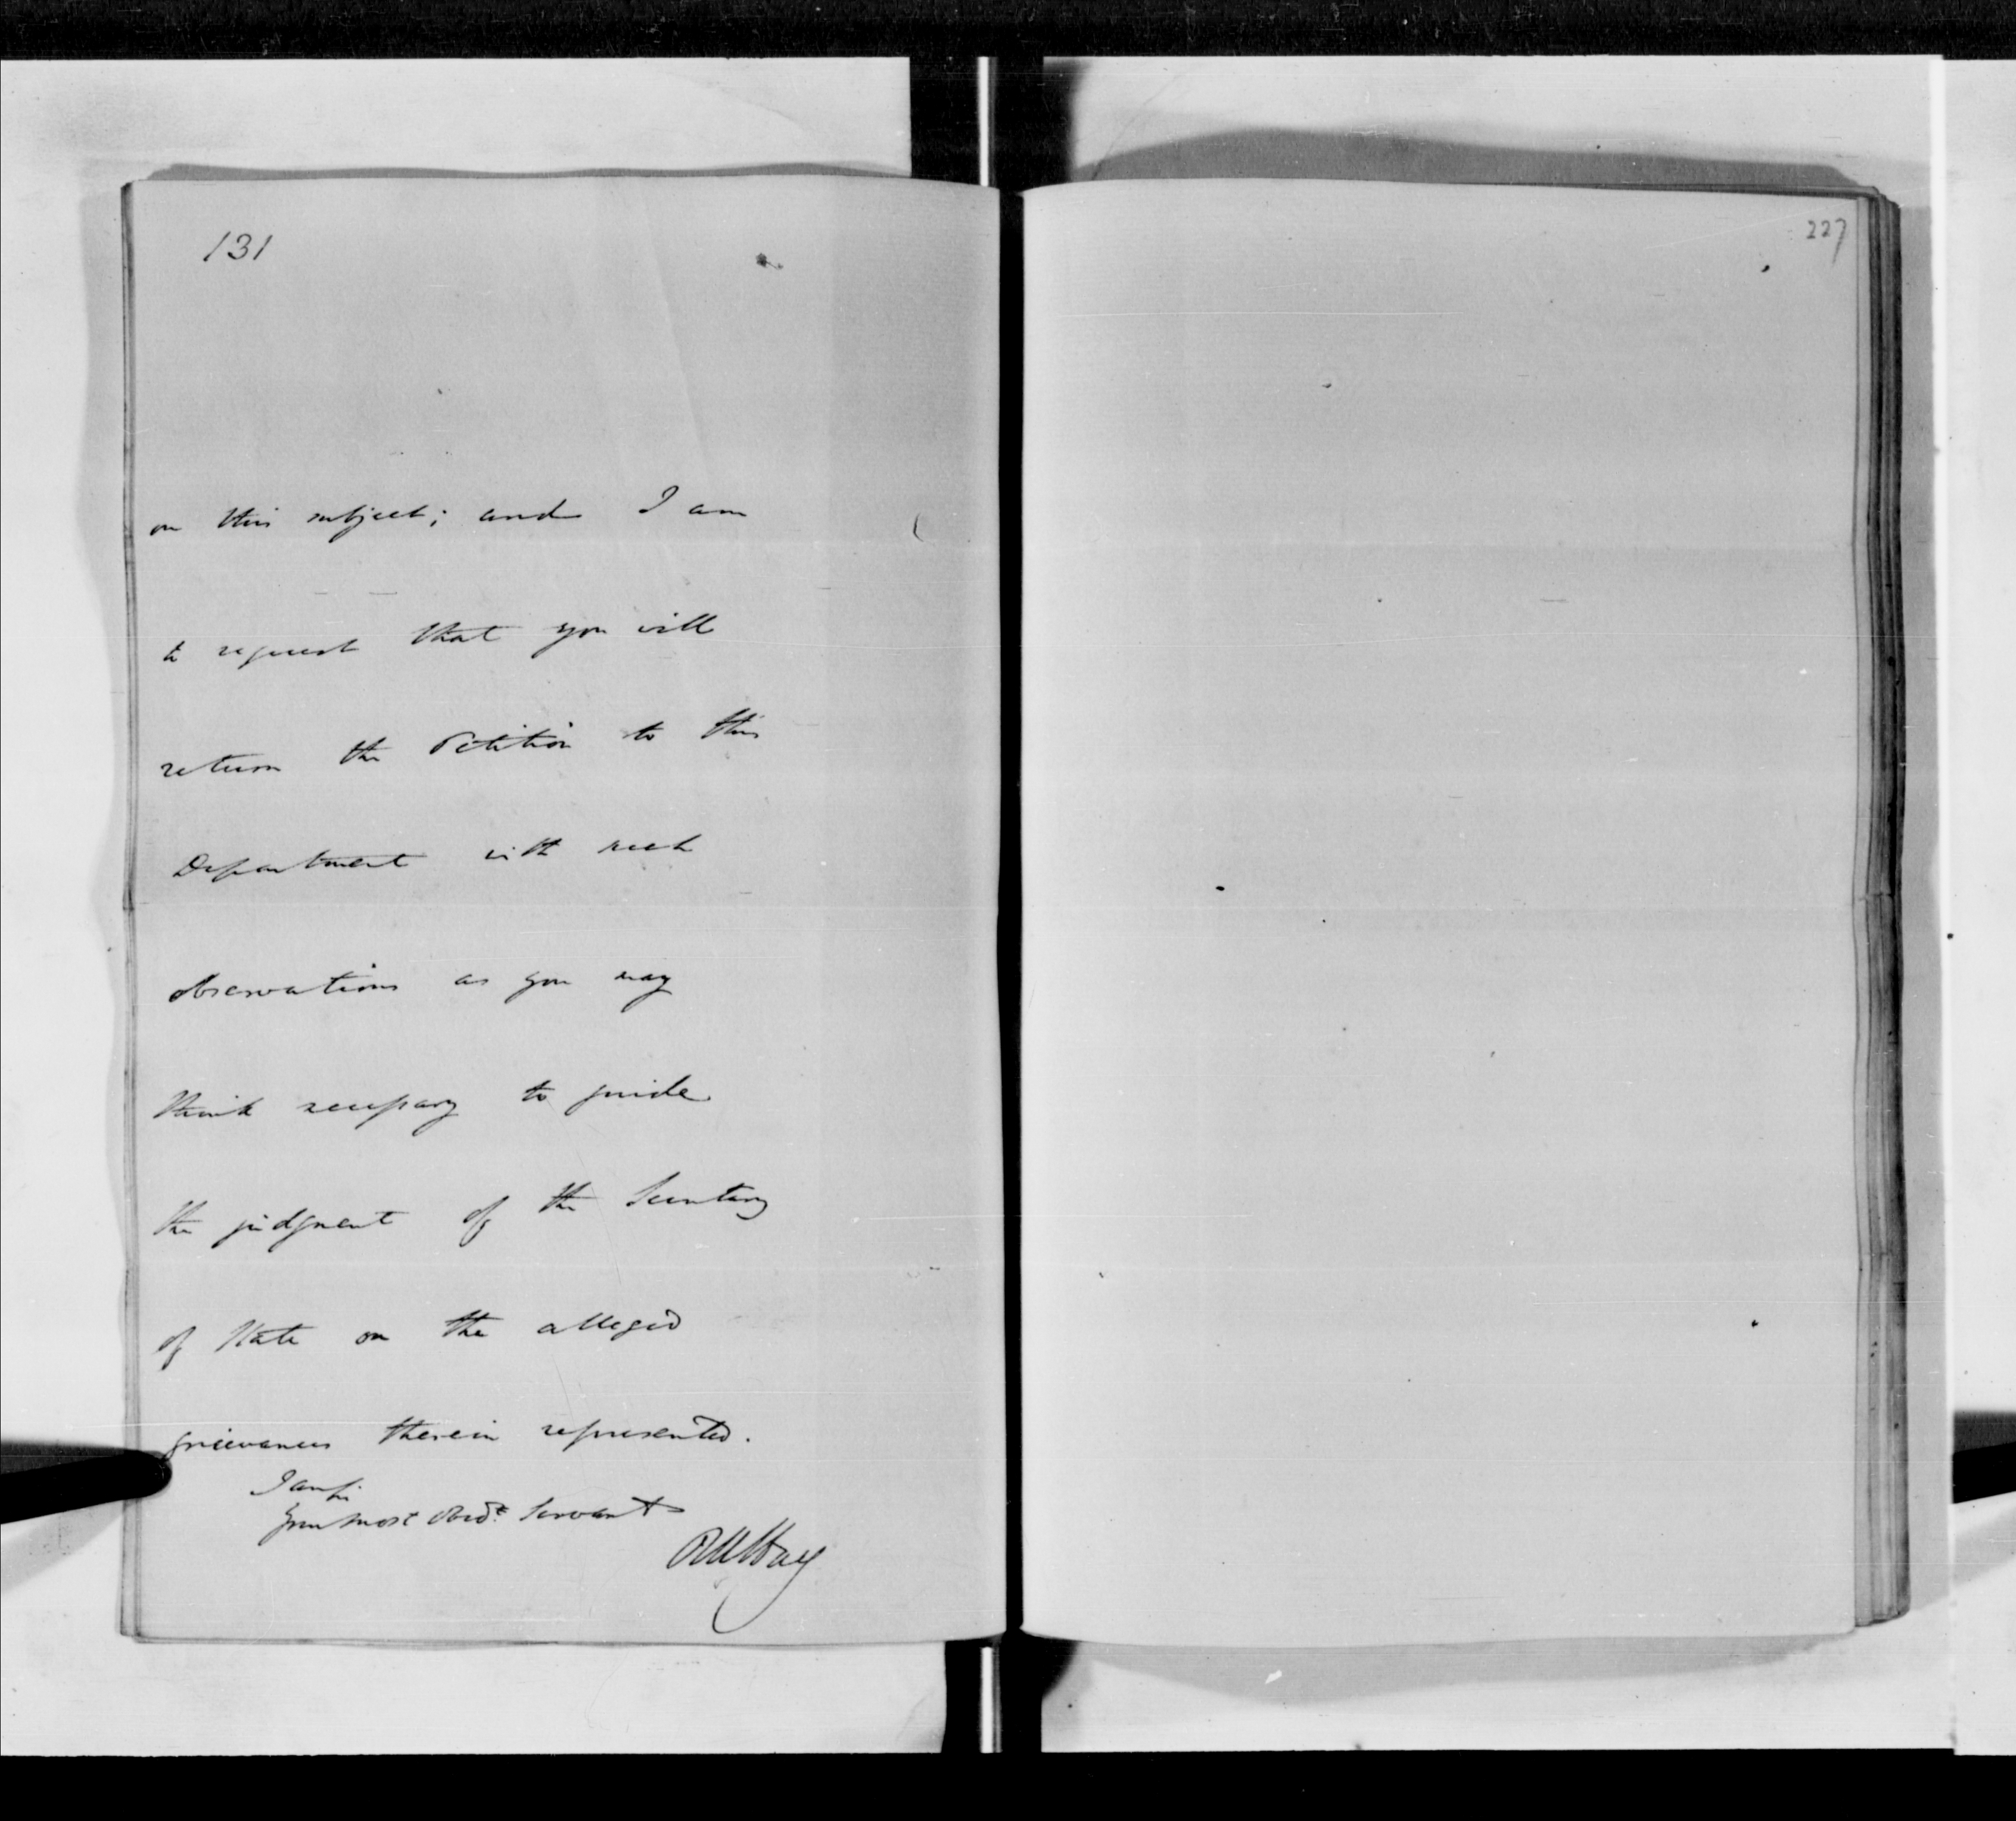 131
on this subject; and I am
to request that you will
return the Petition to this
Department with such
observations as you may
think necessary to guide
the judgment of the Secretary
of State on the alleged
grievances therein represented.
I am Sir
Your most Obedt. Servant
RW Hay
227